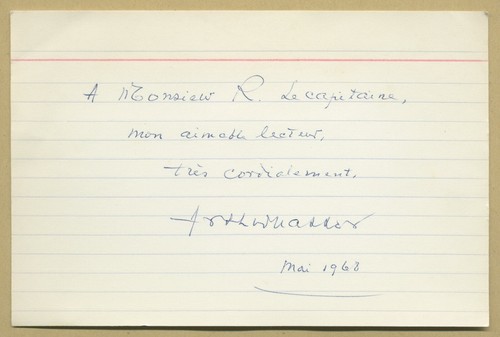 A Monsieur R. Lecapitaine,
mon aimable lecteur,
très cordialement.
Mai 1968